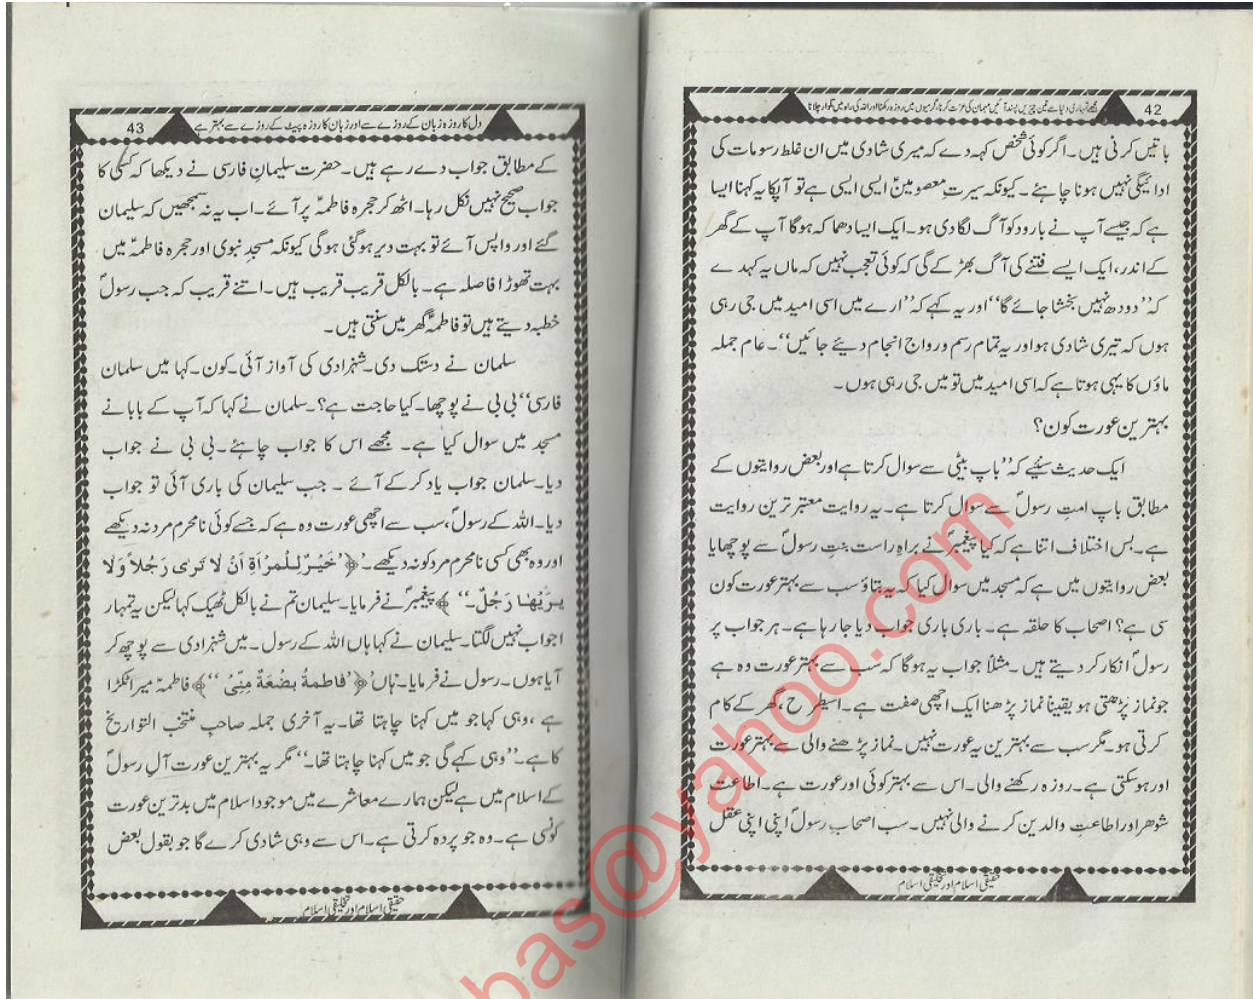 42
مجھے تمہاری دنیا سے تین چیزیں پسند آئیں مہمان کی عزت کرنا، گرمیوں میں روزہ رکھنا اور اللہ کی راہ میں تلوار چلانا
باتیں کرنی ہیں۔ اگر کوئی شخص کہہ دے کہ میری شادی میں ان غلط رسومات کی
ادائیگی نہیں ہونا چاہئے۔ کیونکہ سیرتِ معصومینؑ ایسی ایسی ہے تو آپکا یہ کہنا ایسا
ہے کہ جیسے آپ نے بارود کو آگ لگا دی ہو۔ ایک ایسا دھماکہ ہوگا آپ کے گھر
کے اندر، ایک ایسے فتنے کی آگ بھڑ کے گی کہ کوئی تعجب نہیں کہ ماں یہ کہدے
کہ ’’دودھ نہیں بخشا جائے گا‘‘ اور یہ کہے کہ ’’ارے میں اسی امید میں جی رہی
ہوں کہ تیری شادی ہو اور یہ تمام رسم و رواج انجام دیئے جائیں‘‘۔ عام جملہ
ماؤں کا یہی ہوتا ہے کہ اسی امید میں تو میں جی رہی ہوں۔
بہترین عورت کون؟
ایک حدیث سنیے کہ ’’باپ بیٹی سے سوال کرتا ہے اور بعض روایتوں کے
مطابق باپ امتِ رسولؐ سے سوال کرتا ہے۔ یہ روایت معتبر ترین روایت
ہے۔ بس اختلاف اتنا ہے کہ کیا پیغمبرؐ نے براہِ راست بنتِ رسولؐ سے پوچھا یا
بعض روایتوں میں ہے کہ مسجد میں سوال کیا کہ یہ بتاؤ سب سے بہتر عورت کون
سی ہے؟ اصحاب کا حلقہ ہے۔ باری باری جواب دیا جا رہا ہے۔ ہر جواب پر
رسولؐ انکار کر دیتے ہیں۔ مثلاً جواب یہ ہوگا کہ سب سے بہتر عورت وہ ہے
جو نماز پڑھتی ہو یقیناً نماز پڑھنا ایک اچھی صفت ہے۔ اسیطرح، گھر کے کام
کرتی ہو۔ مگر سب سے بہترین یہ عورت نہیں۔ نماز پڑھنے والی سے بہتر عورت
اور ہوسکتی ہے۔ روزہ رکھنے والی۔ اس سے بہتر کوئی اور عورت ہے۔ اطاعت
شوہر اور اطاعتِ والدین کرنے والی نہیں۔ سب اصحابِ رسولؐ اپنی اپنی عقل
حقیقی اسلام اور تخلیقی اسلام
دل کا روزہ زبان کے روزے سے اور زبان کا روزہ پیٹ کے روزے سے بہتر ہے
43
کے مطابق جواب دے رہے ہیں۔ حضرت سلیمانِ فارسی نے دیکھا کہ کسی کا
جواب صحیح نہیں نکل رہا۔ اٹھ کر حجرہ فاطمہؑ پر آئے۔ اب یہ نہ سمجھیں کہ سلیمان
گئے اور واپس آئے تو بہت دیر ہوگئی ہوگی کیونکہ مسجدِ نبوی اور حجرہ فاطمہؑ میں
بہت تھوڑا فاصلہ ہے۔ بالکل قریب قریب ہیں۔ اتنے قریب کہ جب رسولؐ
خطبہ دیتے ہیں تو فاطمہؑ گھر میں سنتی ہیں۔
سلمان نے دستک دی۔ شہزادی کی آواز آئی۔ کون۔ کہا میں سلمان
فارسی‘‘ بی بی نے پوچھا۔ کیا حاجت ہے؟۔ سلمان نے کہا کہ آپ کے بابا نے
مسجد میں سوال کیا ہے۔ مجھے اس کا جواب چاہئے۔ بی بی نے جواب
دیا۔ سلمان جواب یاد کر کے آئے۔ جب سلیمان کی باری آئی تو جواب
دیا۔ اللہ کے رسولؐ، سب سے اچھی عورت وہ ہے کہ جسے کوئی نامحرم مرد نہ دیکھے
اور وہ بھی کسی نامحرم مرد کو نہ دیکھے۔ ﴿’’خَیْرٌ لِلْمرْأةِ اَنْ لَا تَرٰی رَجُلاً وَلَا
یرّیٰھَا رَجُلٌ۔‘‘﴾ پیغمبرؐ نے فرمایا۔ سلیمان تم نے بالکل ٹھیک کہا لیکن یہ تمہار
اجواب نہیں لگتا۔ سلیمان نے کہا ہاں اللہ کے رسول۔ میں شہزادی سے پوچھ کر
آیا ہوں۔ رسول نے فرمایا۔ ہاں ﴿’’فاطمةُ بضْعَةٌ مِنّیْ‘‘﴾ فاطمہؑ میرا ٹکڑا
ہے، وہی کہا جو میں کہنا چاہتا تھا۔ یہ آخری جملہ صاحبِ منتخب التواریخ
کا ہے۔ ’’وہی کہے گی جو میں کہنا چاہتا تھا۔‘‘ مگر یہ بہترین عورت آلِ رسولؐ
کے اسلام میں ہے لیکن ہمارے معاشرے میں موجود اسلام میں بدترین عورت
کونسی ہے۔ وہ جو پردہ کرتی ہے۔ اس سے وہی شادی کرے گا جو بقول بعض
حقیقی اسلام اور تخلیقی اسلام
bas@yahoo.com